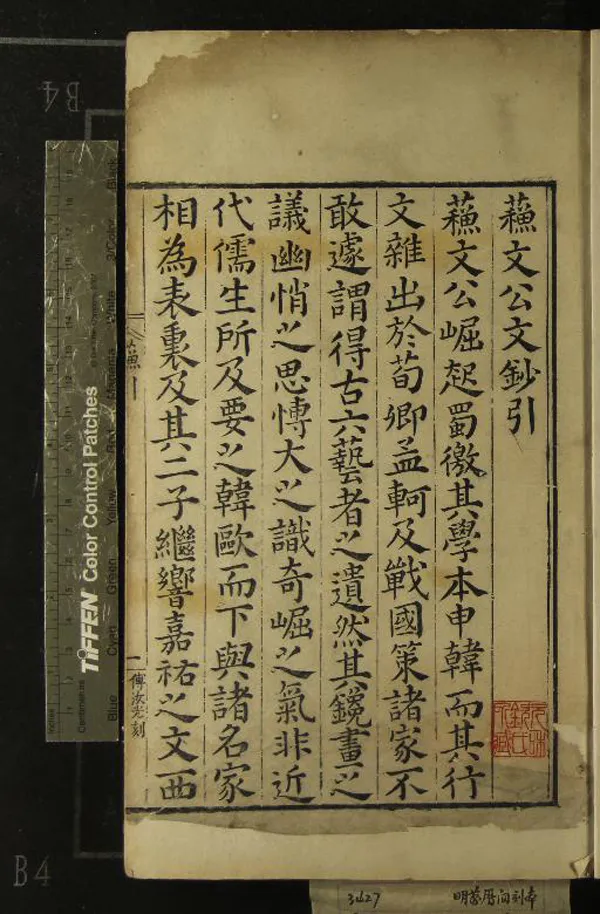 蘓文公文鈔引
蘓文公崛起蜀徼其學本申韓而其行
文雜出於荀卿孟軻及戰國策諸家不
敢遽謂得古六藝者之遺然其鑱畫之
議幽悄之思博大之識奇崛之氣非近
代儒生所及要之韓歐而下與諸名家
相為表裏及其二子繼響嘉祐之文西
蘓引
一
傅汝光刻
TIFFEN Color Control Patches
Blue
Cyan
Green
Yellow
Black
Centimetres
B4
B4
3427
明萬曆間刻本